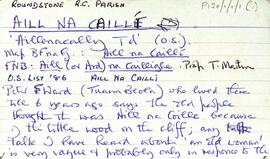 ROUNDSTONE R.C. PARISH P120/1/1/1 (i)
AILL NA CAILLÍ
'Aillenacally Td' (O.S.)
Map BFnaG: Aill na Caillí
FNB: Aill (or Ard) na Caillighe. Prof T. Mac
O.S. LIST '46 AILL NA CAILLÍ
Peter Ward (Tuam Beola) who lived there
till 6 years ago says the old people
thought it was Aill na Caille because
of the little wood on the cliff; any
talk I have heard about 'an old woman'
is very vague & probably only in response to the